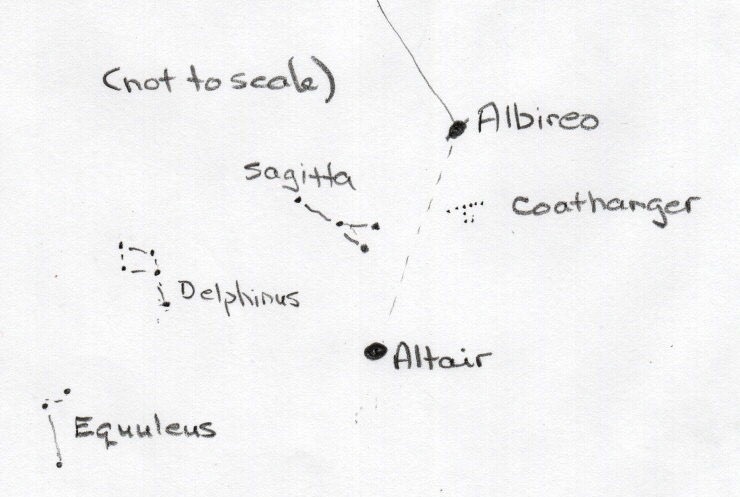 (not to scale)
Albireo
Sagitta
Coathanger
Delphinus
Altair
Equuleus